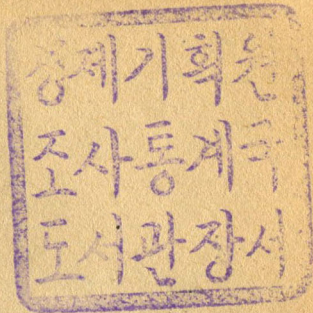 경제기획원
조사통계국
도서관장서